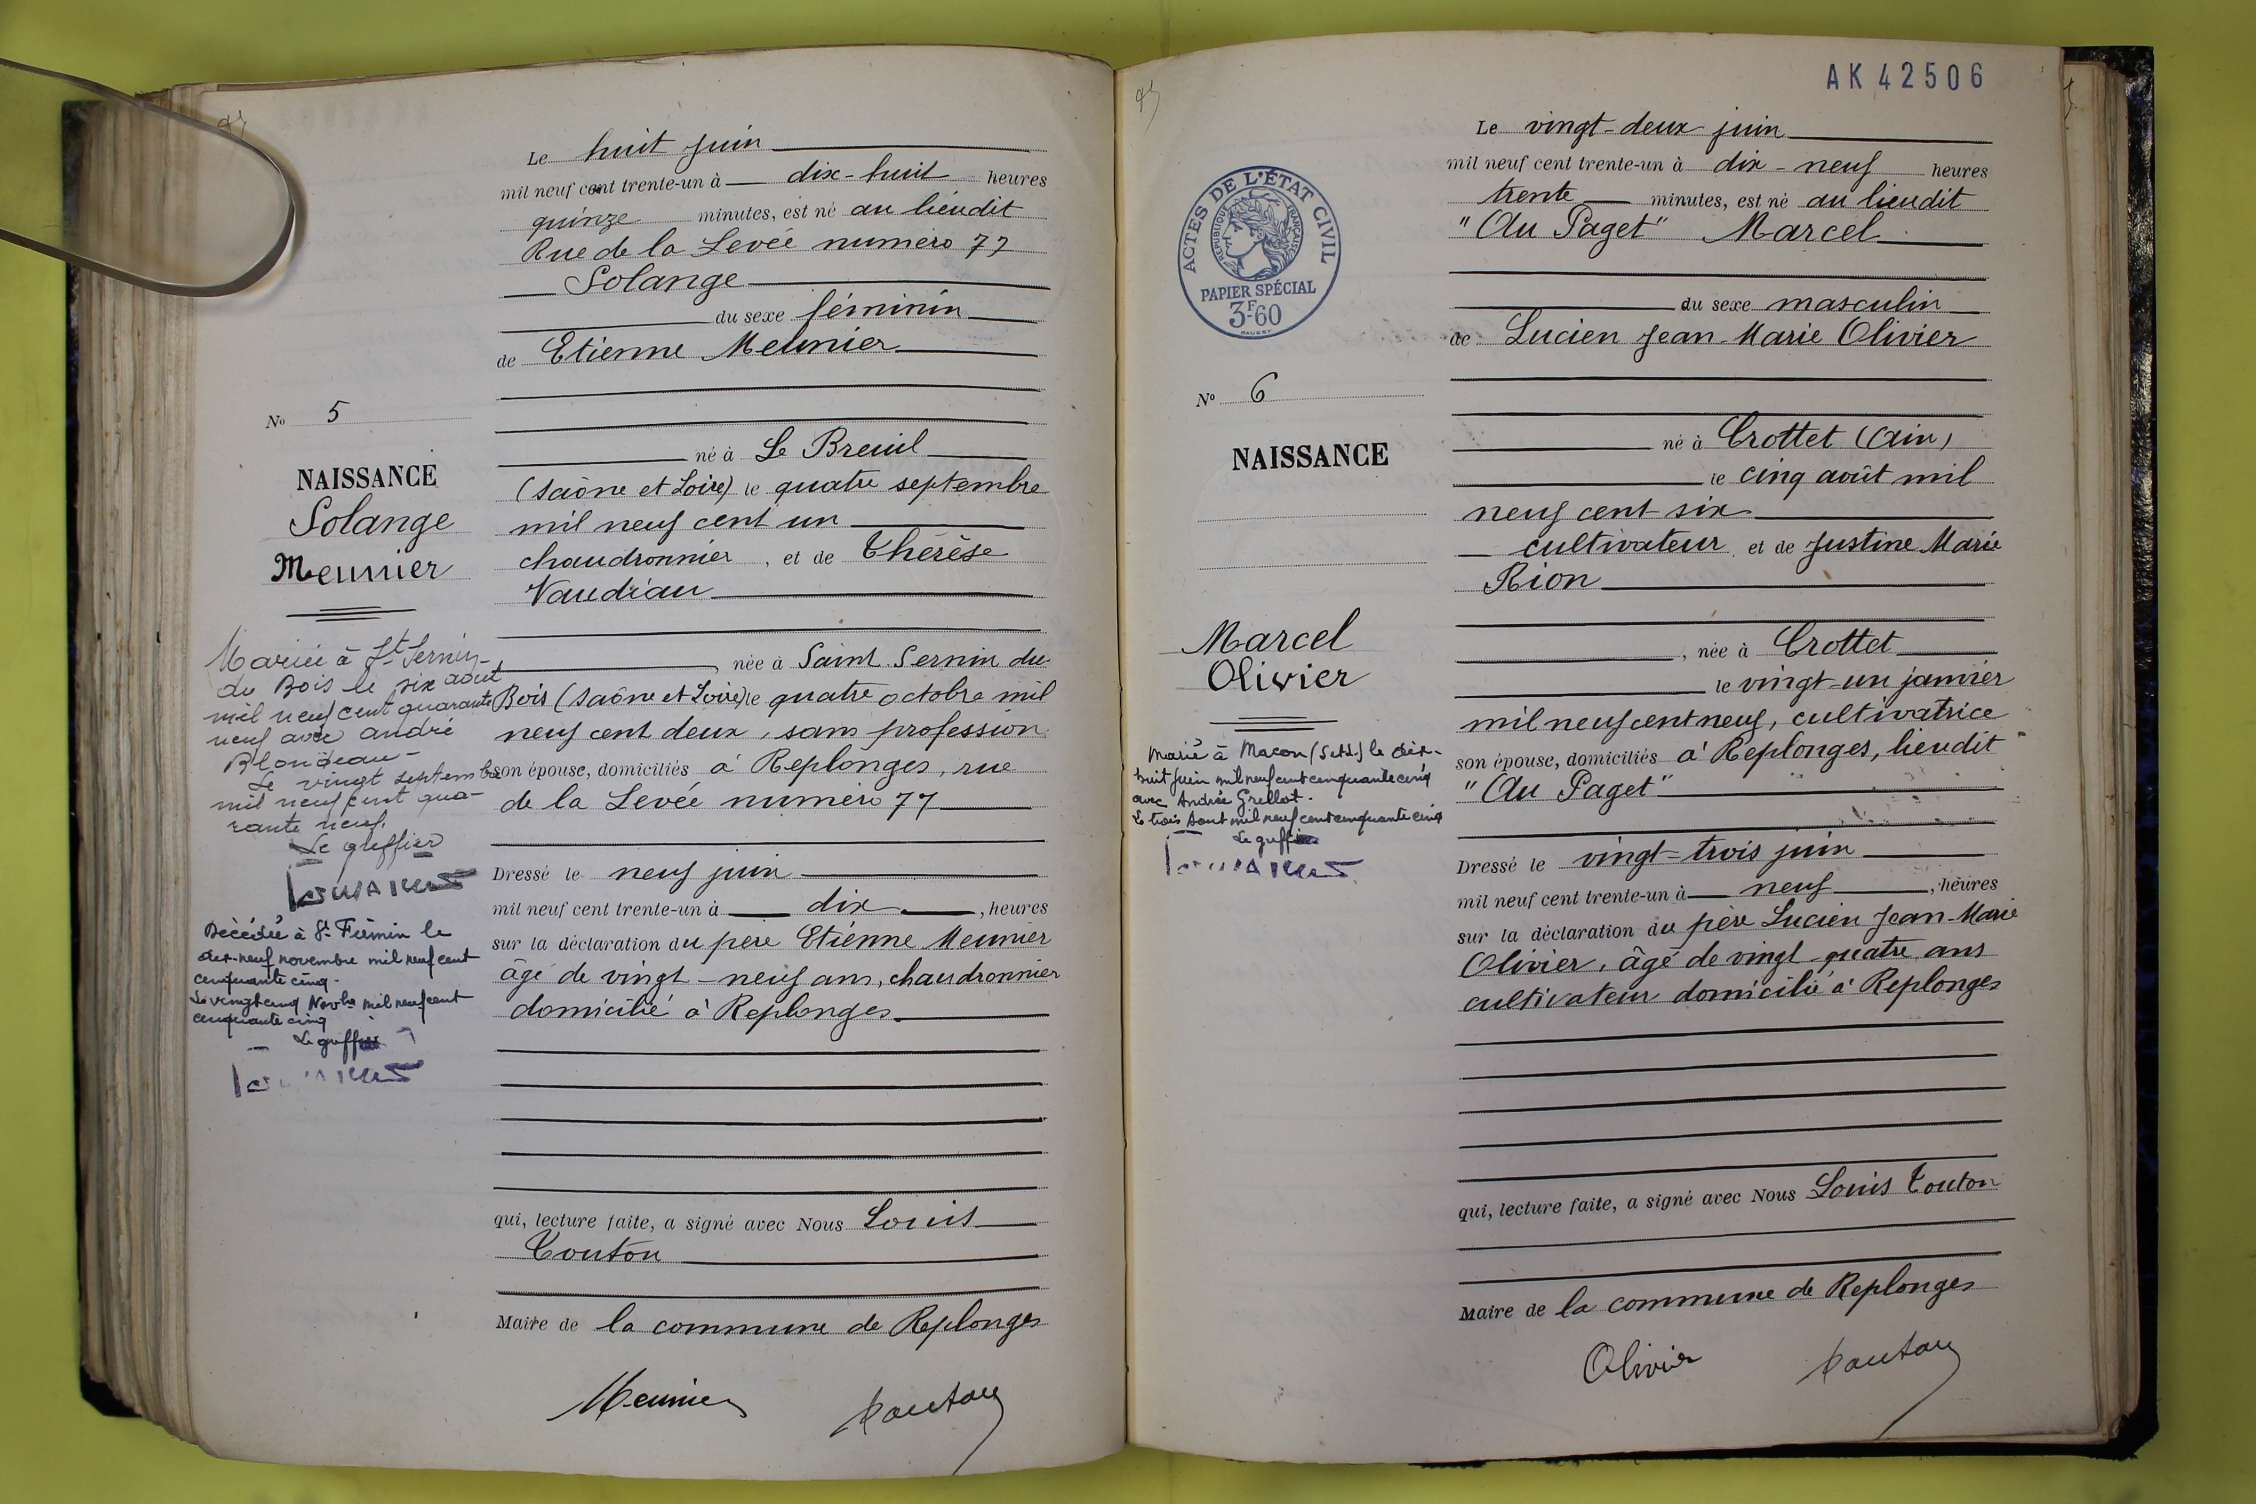 Le huit juin
mil neuf cent trente-un à dix-huit heures
quinze minutes, est né au lieudit
Rue de la Levée numéro 77
Solange
du sexe féminin
de Etienne Meunier
né à Le Breuil
(Saône et Loire) le quatre septembre
mil neuf cent un
chaudronnier, et de Thérèse
Vaudiau
, née à Saint Sernin du
Bois (Saône et Loire) le quatre octobre mil
neuf cent deux, sans profession
son épouse, domiciliés à Replonges, rue
de la Levée numéro 77
Dressé le neuf juin
mil neuf cent trente-un à dix, heures
sur la déclaration du père Etienne Meunier
âgé de vingt-neuf ans, chaudronnier
domicilié à Replonges
qui, lecture faite, a signé avec Nous Louis
Touton
Maire de la commune de Replonges
Meunier
Touton
No 5
NAISSANCE
Solange
Meunier
Mariée à St Sernin-
du Bois le six août
mil neuf cent quarante
neuf avec André
Blondeau-
Le vingt septembre
mil neuf cent qua-
rante neuf.
Le greffier
Décédée à St Firmin le
dix-neuf novembre mil neuf cent
cinquante cinq.
Le vingt cinq Novbre mil neuf cent
cinquante cinq
Le greffier
AK 42506
Le vingt-deux juin
mil neuf cent trente-un à dix-neuf heures
trente minutes, est né au lieudit
"Au Paget" Marcel
du sexe masculin
de Lucien Jean-Marie Olivier
né à Crottet (Ain)
le cinq août mil
neuf cent six
cultivateur et de Justine Marie
Rion
, née à Crottet
le vingt-un janvier
mil neuf cent neuf, cultivatrice
son épouse, domiciliés à Replonges, lieudit
"Au Paget"
Dressé le vingt-trois juin
mil neuf cent trente-un à neuf, heures
sur la déclaration du père Lucien Jean-Marie
Olivier, âgé de vingt-quatre ans
cultivateur domicilié à Replonges
qui, lecture faite, a signé avec Nous Louis Touton
Maire de la commune de Replonges
Olivier
Touton
ACTES DE L'ÉTAT CIVIL
RÉPUBLIQUE FRANÇAISE
PAPIER SPÉCIAL
3F-60
No 6
NAISSANCE
Marcel
Olivier
Marié à Macon (S et L) le dix-
huit juin mil neuf cent cinquante cinq
avec Andrée Grellot.
Le trois Aout mil neuf cent cinquante cinq
Le greffier